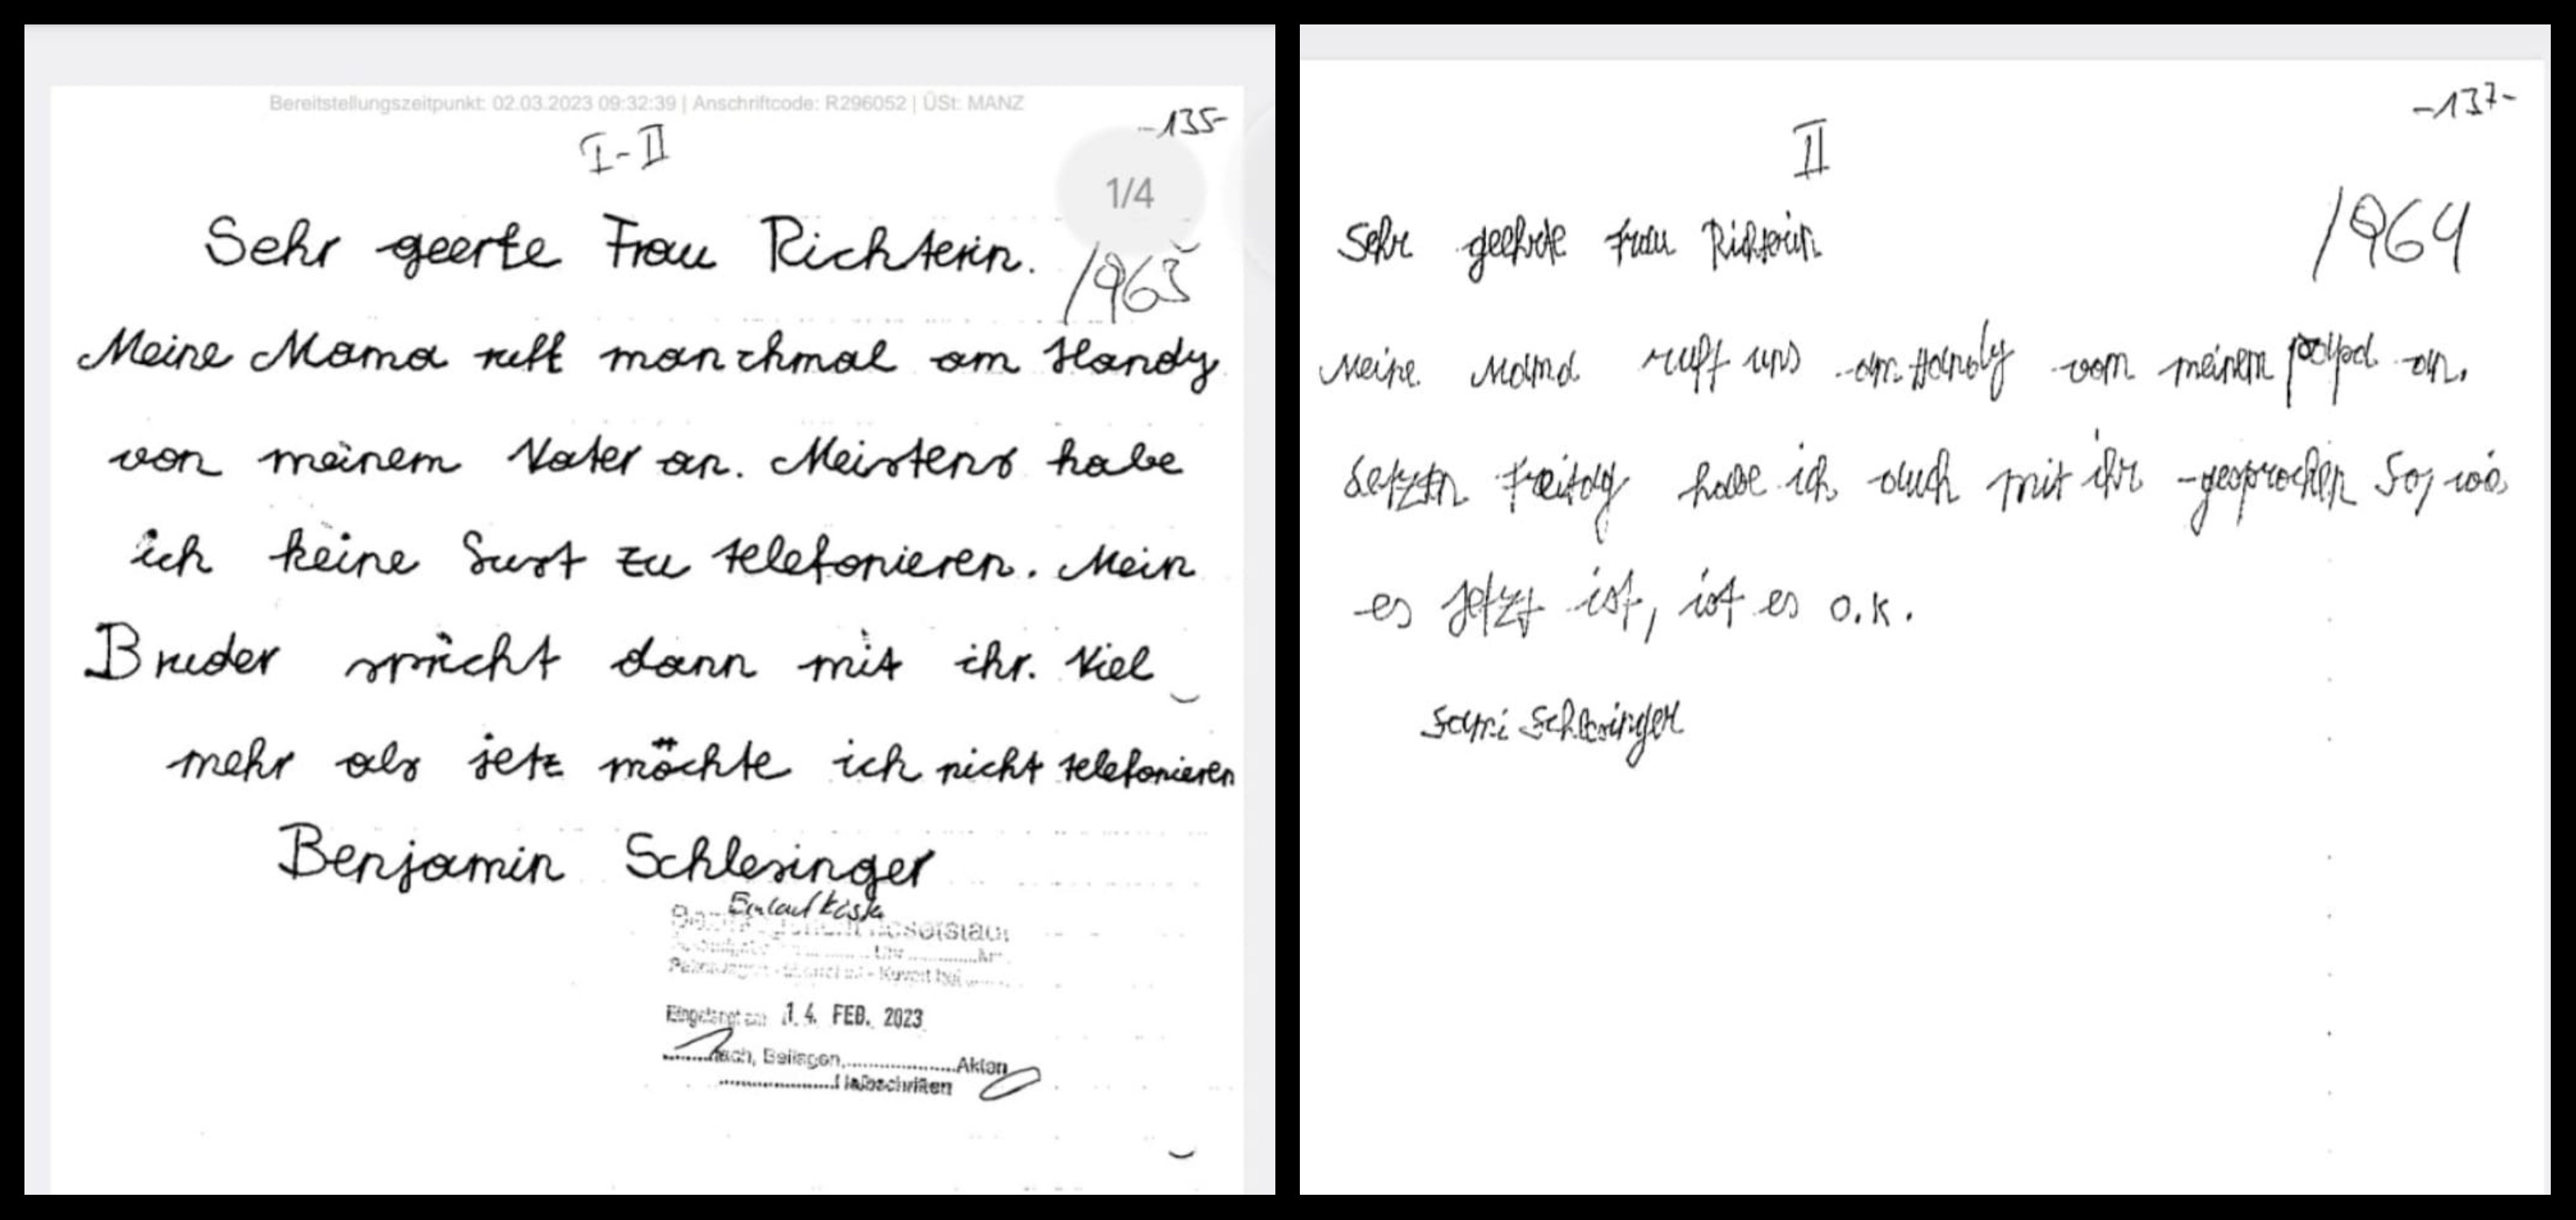 Bereitstellungszeitpunkt: 02.03.2023 09:32:39 | Anschriftcode: R296052 | ÜSt: MANZ
-135-
I-II
1/4
Sehr geerte Frau Richterin.
1963
Meine Mama ruft manchmal am Handy
von meinem Vater an. Meistens habe
ich keine Lust zu telefonieren. Mein
Bruder spricht dann mit ihr. Viel
mehr als jetz möchte ich nicht telefonieren
Benjamin Schlesinger
Eingelangt am 14. FEB. 2023
fach, Beilagen, Akten
Halbschriften
-137-
II
Sehr geehrte Frau Richterin
1964
Meine Mama ruft uns am Handy vom meinem papa an.
Letztn Freitag habe ich auch mit ihr gesprochen So, wie
es jetzt ist, ist es o.k.
Sami Schlesinger